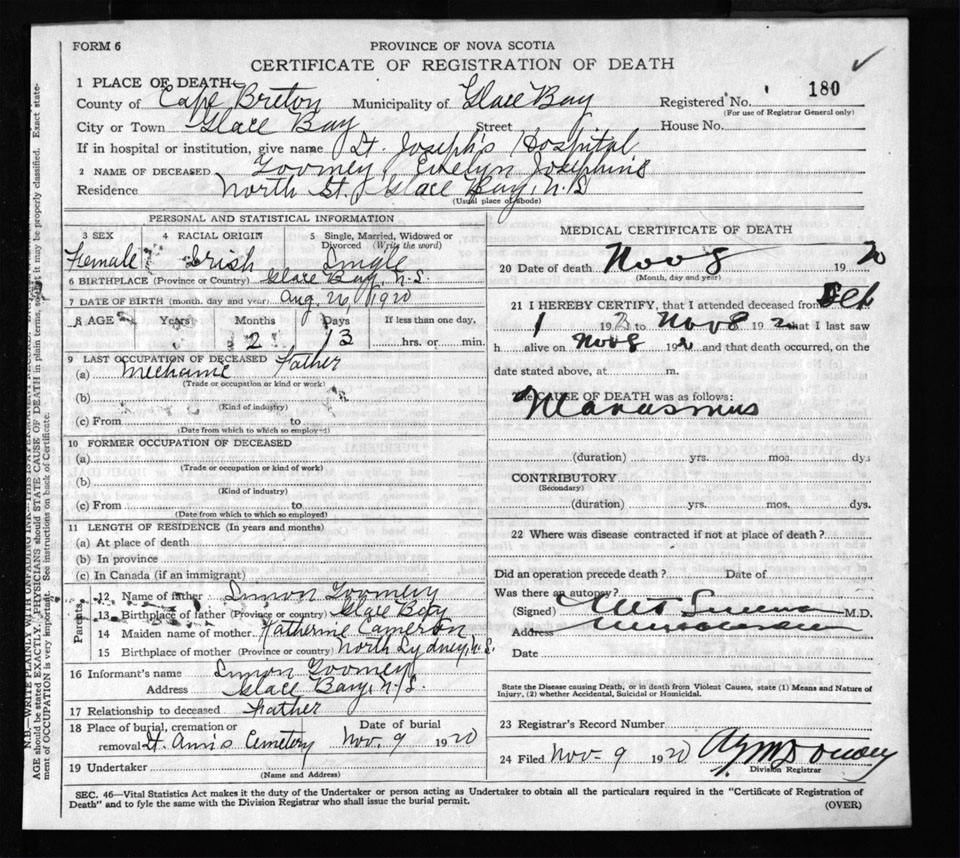 FORM 6
PROVINCE OF NOVA SCOTIA
CERTIFICATE OF REGISTRATION OF DEATH
1 PLACE OF DEATH
County of Cape Breton Municipality of Glace Bay Registered No. 180
(For use of Registrar General only)
City or Town Glace Bay Street House No.
If in hospital or institution, give name St. Joseph's Hospital
2 NAME OF DECEASED Toomey, Evelyn Josephine
Residence North St. Glace Bay, N.S
(Usual place of abode)
PERSONAL AND STATISTICAL INFORMATION
3 SEX 4 RACIAL ORIGIN 5 Single, Married, Widowed or Divorced (Write the word)
Female Irish Single
6 BIRTHPLACE (Province or Country) Glace Bay, N.S.
7 DATE OF BIRTH (month, day and year) Aug. 26, 1920
8 AGE Years Months Days If less than one day,
2 13 hrs. or min.
9 LAST OCCUPATION OF DECEASED Father
(a) Mechanic
(Trade or occupation or kind or work)
(b)
(Kind of industry)
(c) From to
(Date from which to which so employed)
10 FORMER OCCUPATION OF DECEASED
(a)
(Trade or occupation or kind of work)
(b)
(Kind of industry)
(c) From to
(Date from which to which so employed)
11 LENGTH OF RESIDENCE (In years and months)
(a) At place of death
(b) In province
(c) In Canada (if an immigrant)
Parents.
12 Name of father Simon Toomey
13 Birthplace of father (Province or country) Glace Bay
14 Maiden name of mother Katherine Cameron
15 Birthplace of mother (Province or country) North Sydney, N.S.
16 Informant's name Simon Toomey
Address Glace Bay, N.S.
17 Relationship to deceased Father
18 Place of burial, cremation or removal St. Ann's Cemetery Date of burial Nov. 9 1920
19 Undertaker
(Name and Address)
MEDICAL CERTIFICATE OF DEATH
20 Date of death Nov 8 1920
(Month, day and year)
21 I HEREBY CERTIFY, that I attended deceased from
1 192 to Nov 8 192 that I last saw
h alive on Nov 8 192 and that death occurred, on the
date stated above, at m.
The CAUSE OF DEATH was as follows:
Marasmus
(duration) yrs. mos. dys
CONTRIBUTORY
(Secondary)
(duration) yrs. mos. dys.
22 Where was disease contracted if not at place of death?
Did an operation precede death? Date of
Was there an autopsy?
(Signed) M.D.
Address
Date
State the Disease causing Death, or in death from Violent Causes, state (1) Means and Nature of
Injury, (2) whether Accidental, Suicidal or Homicidal.
23 Registrar's Record Number
24 Filed Nov. 9 1920
Division Registrar
SEC. 46—Vital Statistics Act makes it the duty of the Undertaker or person acting as Undertaker to obtain all the particulars required in the "Certificate of Registration of
Death" and to fyle the same with the Division Registrar who shall issue the burial permit. (OVER)
N.B.—WRITE PLAINLY WITH UNFADING INK—THIS IS A PERMANENT RECORD.
AGE should be stated EXACTLY. PHYSICIANS should STATE CAUSE OF DEATH in plain terms, so that it may be properly classified. Exact state-
ment of OCCUPATION is very important. See instructions on back of Certificate.